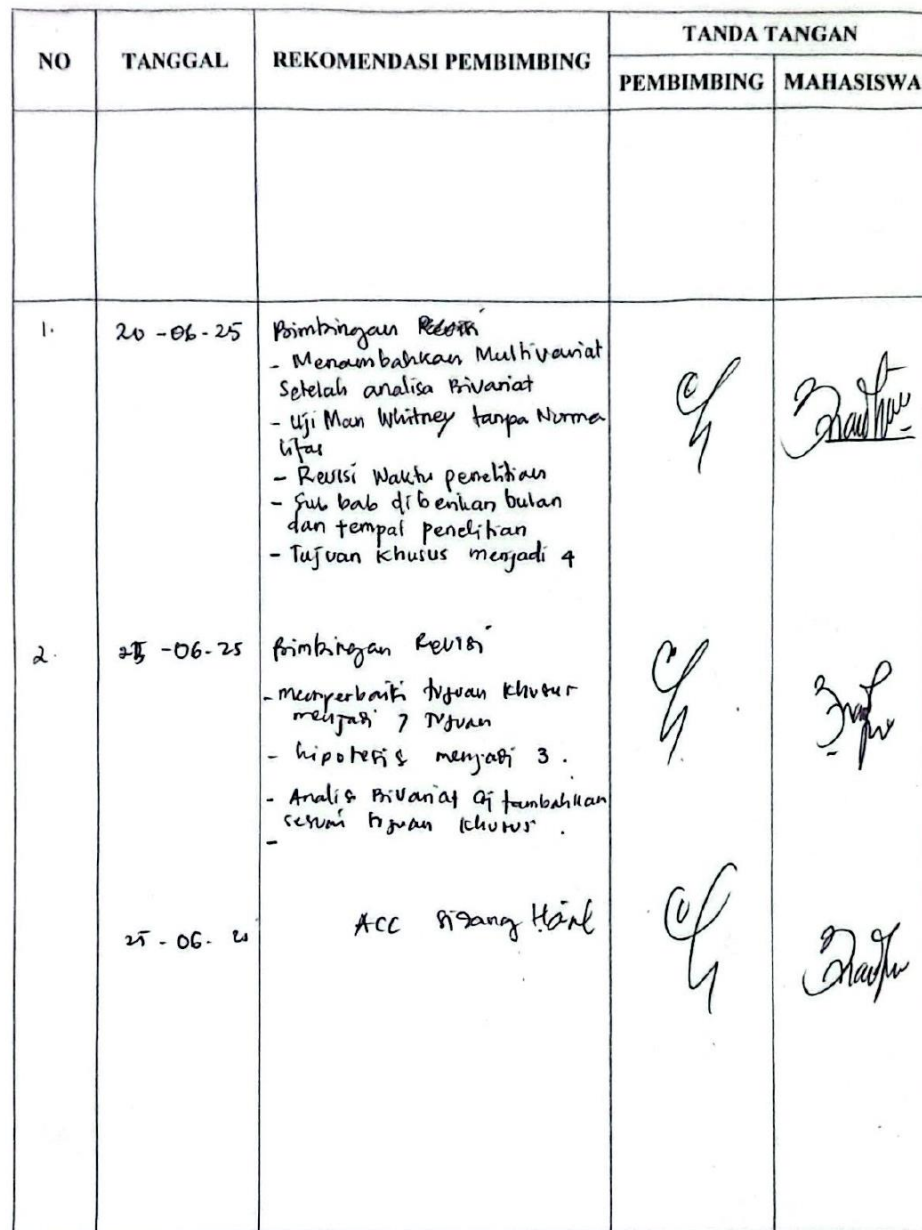 NO TANGGAL REKOMENDASI PEMBIMBING TANDA TANGAN
PEMBIMBING MAHASISWA
1. 20-06-25 Bimbingan
- Menambahkan Multivariat
Setelah analisa Bivariat
- Uji Man Whitney tanpa Norma
litas
- Revisi Waktu penelitian
- Sub bab diberikan bulan
dan tempat penelitian
- Tujuan Khusus menjadi 4
2. -06-25 Bimbingan Revisi
- memperbaiki tujuan khusus
menjadi 7 Tujuan
- hipotesis menjadi 3.
- Analis Bivariat di tambahkan
sesuai tujuan khusus.
-
25-06- ACC sidang Hasil